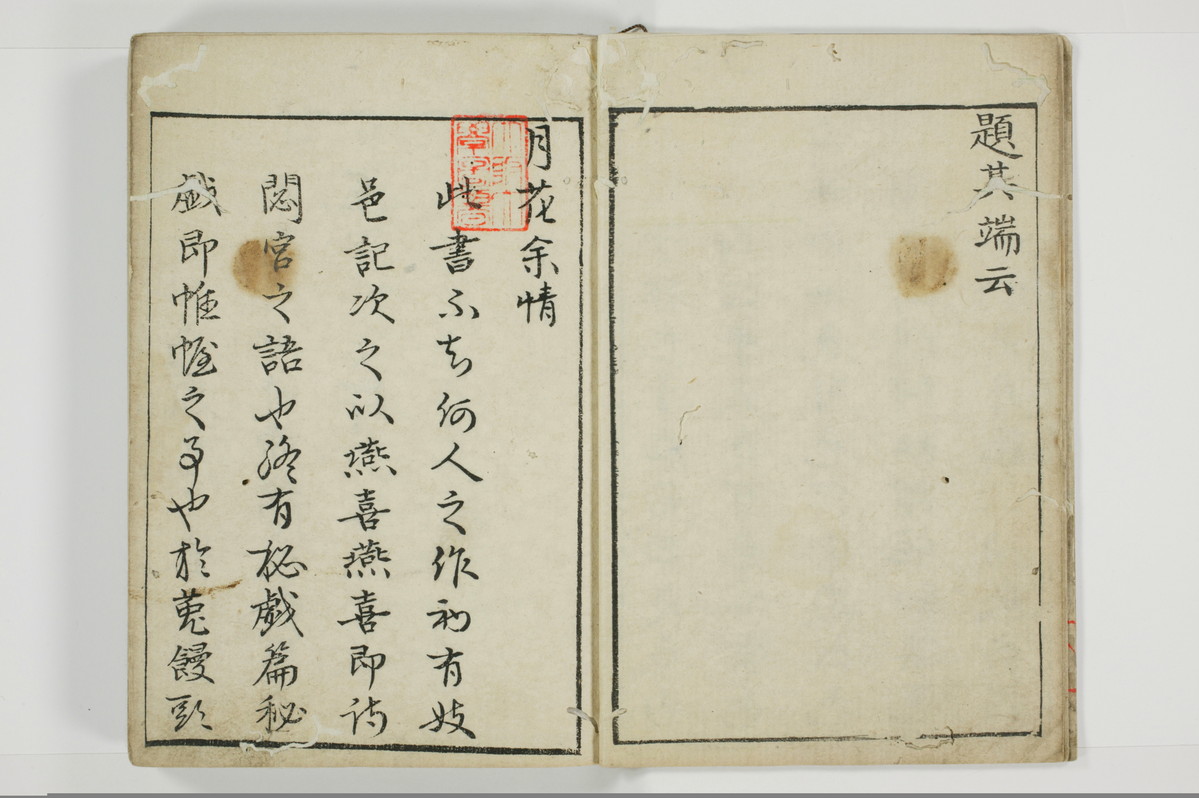 題其端云
月花余情
此書不知何人之作初有妓
邑記次之以燕喜燕喜即詩
閟宮之語也終有秘戯篇秘
戯即帷幄之事也於菟饅頭